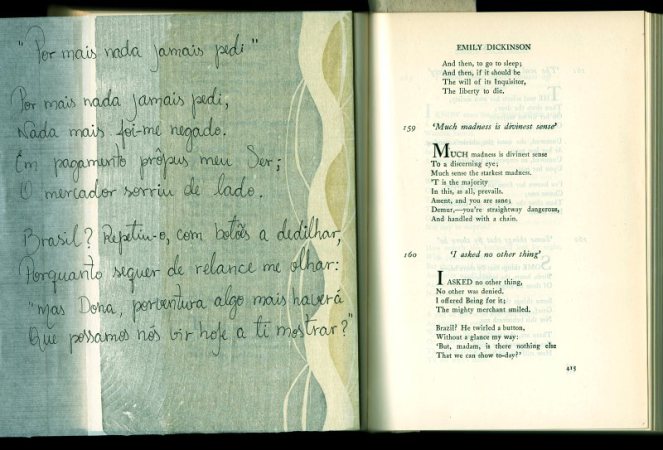 "Por mais nada jamais pedi"
Por mais nada jamais pedi,
Nada mais foi-me negado.
Em pagamento própus meu Ser;
O mercador sorriu de lado.
Brasil? Repetiu-o, com botões a dedilhar,
Porquanto sequer de relance me olhar:
"Mas Dona, porventura algo mais haverá
Que possamos nós vir hoje a ti mostrar?"
EMILY DICKINSON
And then, to go to sleep;
And then, if it should be
The will of its Inquisitor,
The liberty to die.
159 'Much madness is divinest sense'
MUCH madness is divinest sense
To a discerning eye;
Much sense the starkest madness.
'T is the majority
In this, as all, prevails.
Assent, and you are sane;
Demur,—you're straightway dangerous,
And handled with a chain.
160 'I asked no other thing'
I ASKED no other thing,
No other was denied.
I offered Being for it;
The mighty merchant smiled.
Brazil? He twirled a button,
Without a glance my way:
'But, madam, is there nothing else
That we can show to-day?'
415